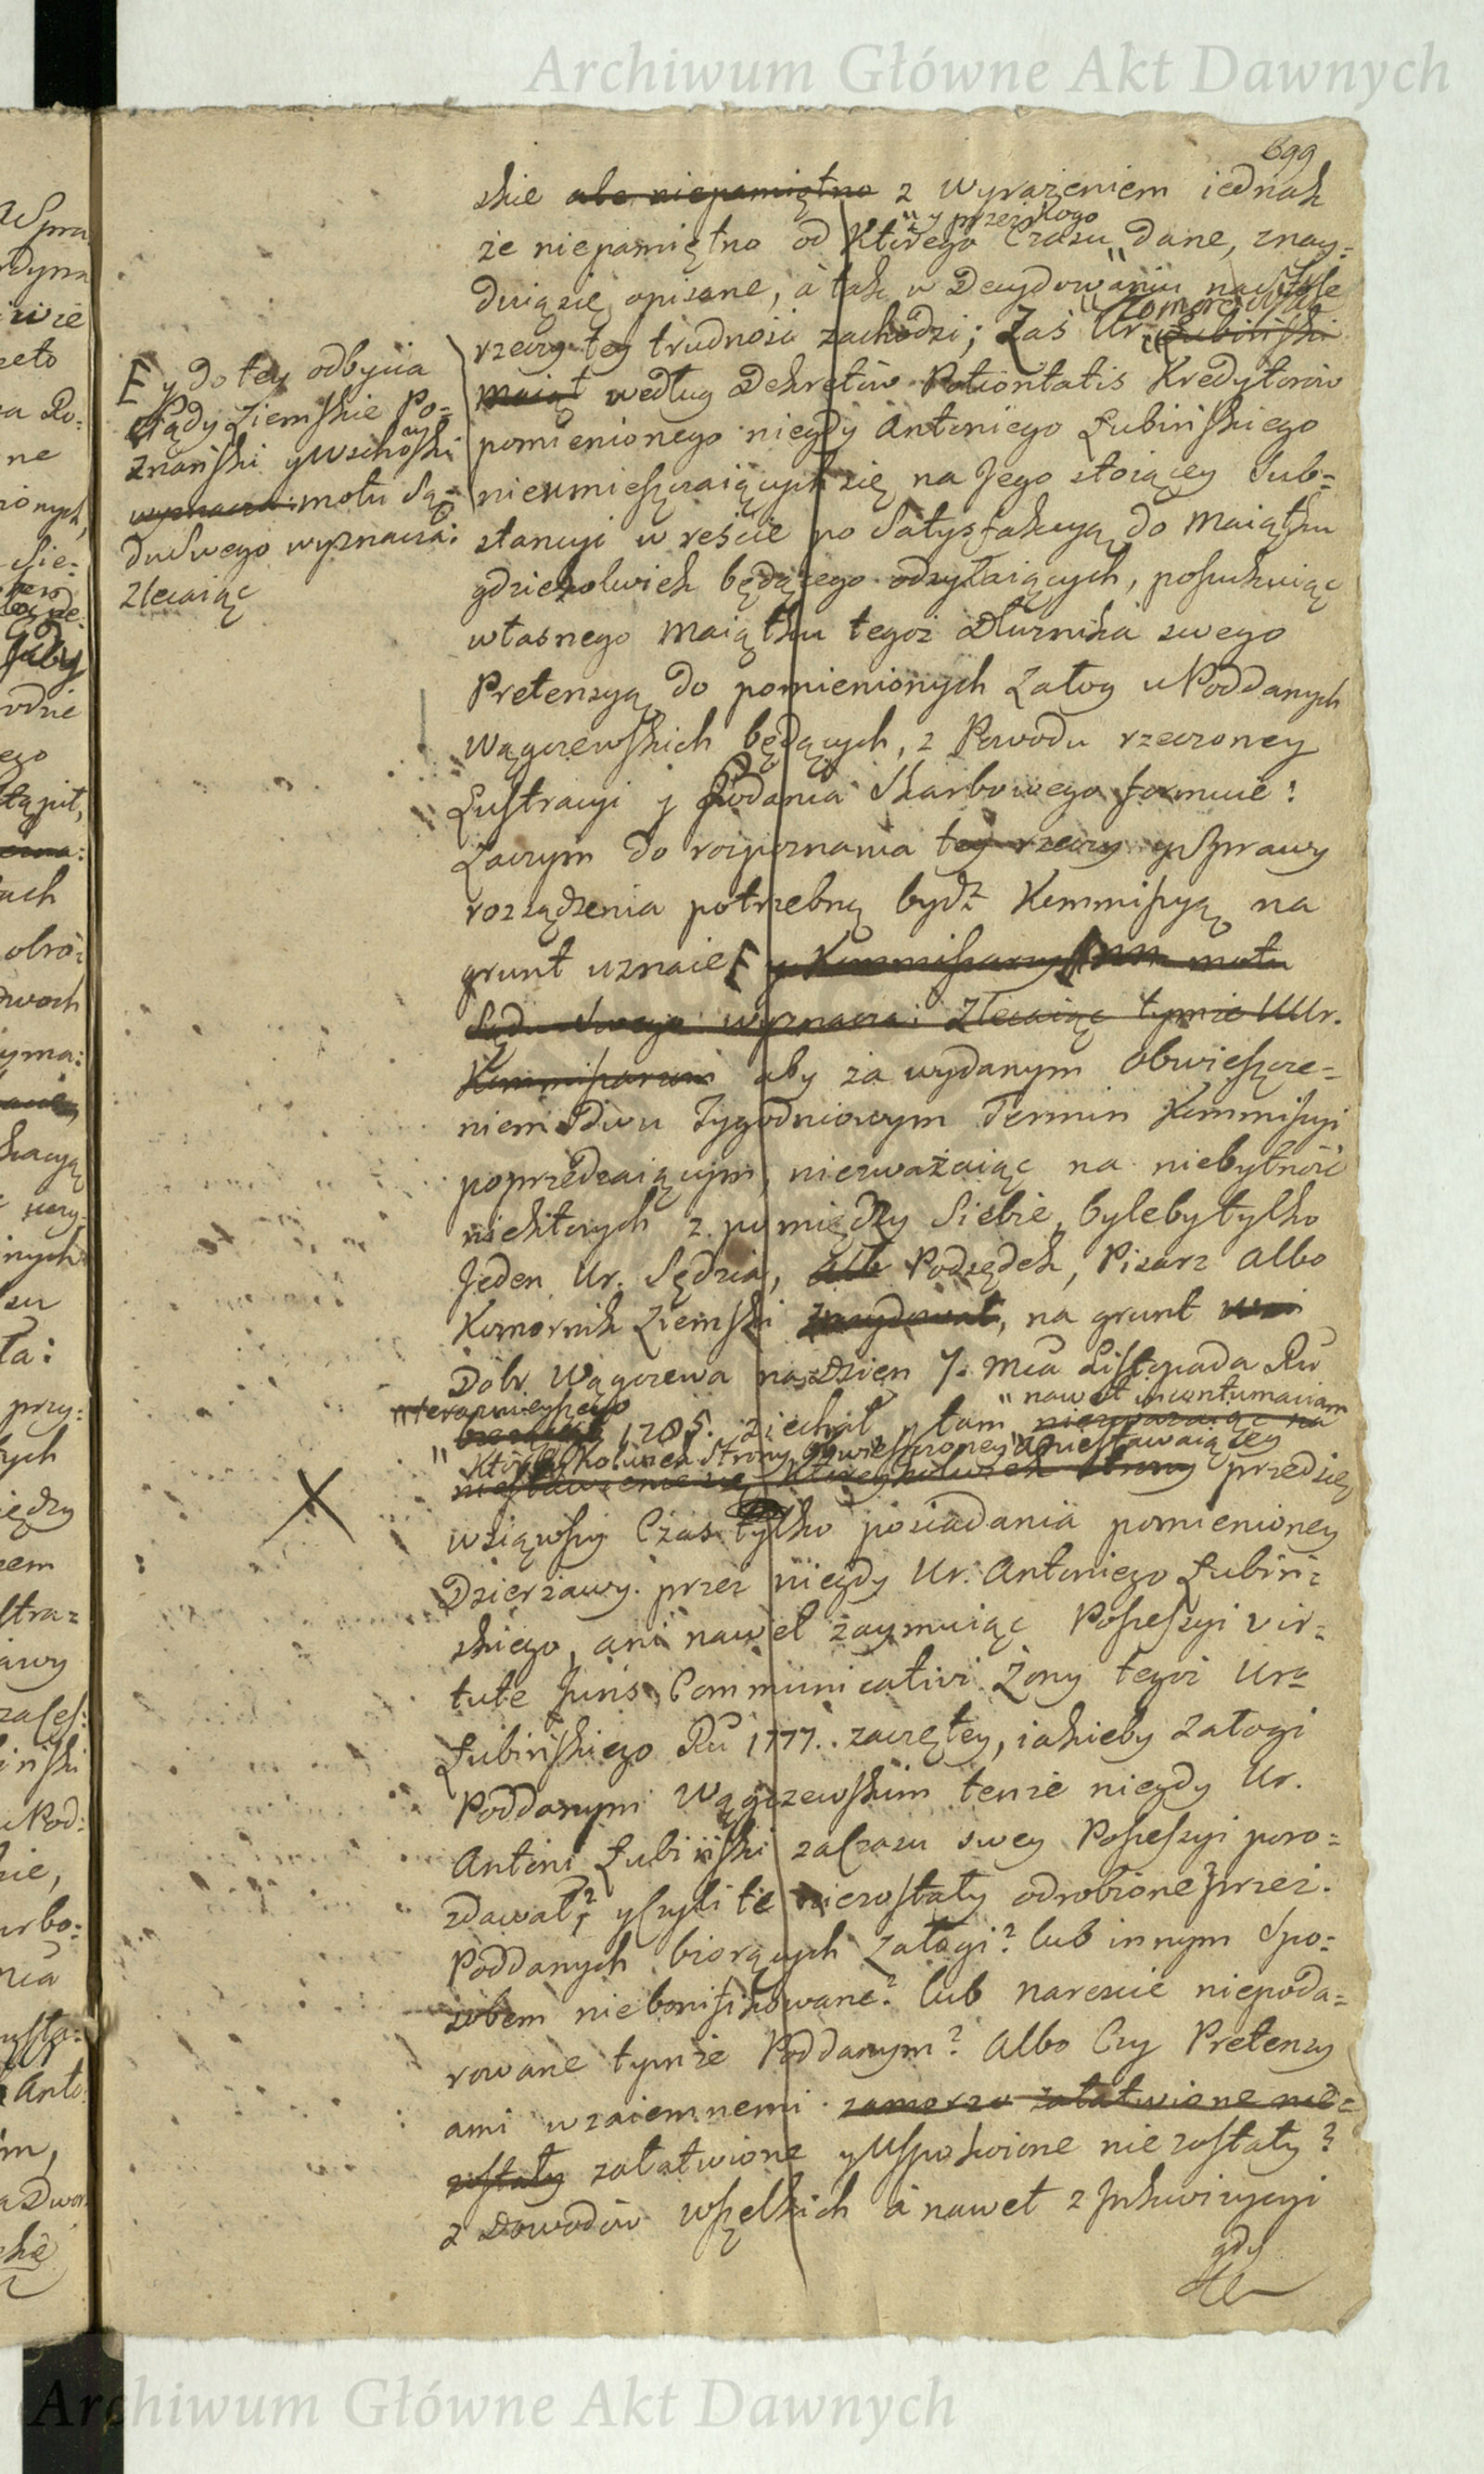 Archiwum Główne Akt Dawnych
699
skie ale niepamiętno z wyrażeniem iednak
y przez kogo
że niepamiętno od którego Czasu dane, znay=
duią się opisane, a tak w Decydowaniu
rzeczy tey trudność zachodzi; Zaś Ur. Łubiński
maiąt według Dekretów Potioritatis Kredytorów
pomienionego niegdy Antoniego Łubińskiego
nieumieszczaiących się na Jego stoiącey Sub=
stancyi w reście po Satysfakcyą do Maiątku
gdziekolwiek będącego odsyłaiących, poszukuiąc
własnego Maiątku tegoż Dłużnika swego
Pretensyą do pomienionych Załog u Poddanych
Wągczewskich będących, z Powodu rzeczoney
Lustracyi y Podania Skarbowego formuie:
Zaczym do rozpoznania tey rzeczy y Sprawy
rozsądzenia potrzebną bydź Kommissyą na
grunt uznaie y Kommissarzy NN. motu
Sądu Swego wyznacza: Zlecaiąc tymże UUr.
Kommissarzom aby za wydanym Obwieszcze=
niem Dwu Tygodniowym Termin Kommissyi
poprzedzaiącym, nieuważaiąc na niebytność
niektórych z pomiędzy Siebie, byleby tylko
Jeden Ur. Sędzia, Alb Podsędek, Pisarz albo
Komornik Ziemski znaydował, na grunt wsi
Dóbr Wągczewa na dzien 7. Mca Listopada Ru
teraznieyszego
nawet in contumaciam
1785. ziechał y tam niezważaiąc na
którey kolwiek Strony obwieszczoney a niestawaiącey
niestawienie się którey kolwiek strony przedsię
wziąwszy Czas tylko posiadania pomienioney
Dzierżawy przez niegdy Ur. Antoniego Łubiń=
skiego, ani nawet zaymuiąc Possessyi vir=
tute Juris Communicativi Żony tegoż Ura
Łubińskiego Ru 1777. zaczętey, iakieby załogi
Poddanym Wągczewskim tenże niegdy Ur.
Antoni Łubiński zaczasu swey Possessyi poro=
zdawał? y czyli te niezostały odrobione przez
Poddanych biorących Załogi? lub innym Spo=
sobem niebonifikowane? lub nareszcie niepoda=
rowane tymże Poddanym? Albo Czy Pretensy
ami wzaiemnemi załatwione nie=
zostały załatwione y Uspokoione nie zostały?
z Dowodów wszelkich a nawet z Inkwizycyi
gdy
y do tey odbycia
Sądy Ziemskie Po=
znański y Wschoski
wyznacza: motu Są=
du Swego wyznacza:
zlecaiąc
Archiwum Główne Akt Dawnych